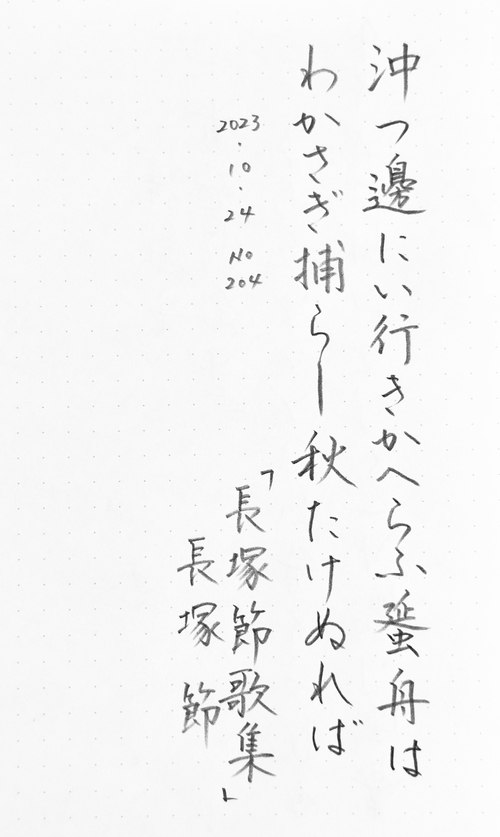 沖つ邊にい行きかへらふ蜑舟は
わかさぎ捕らし秋たけぬれば
「長塚節歌集」
長塚節
2023・10・24 No 204